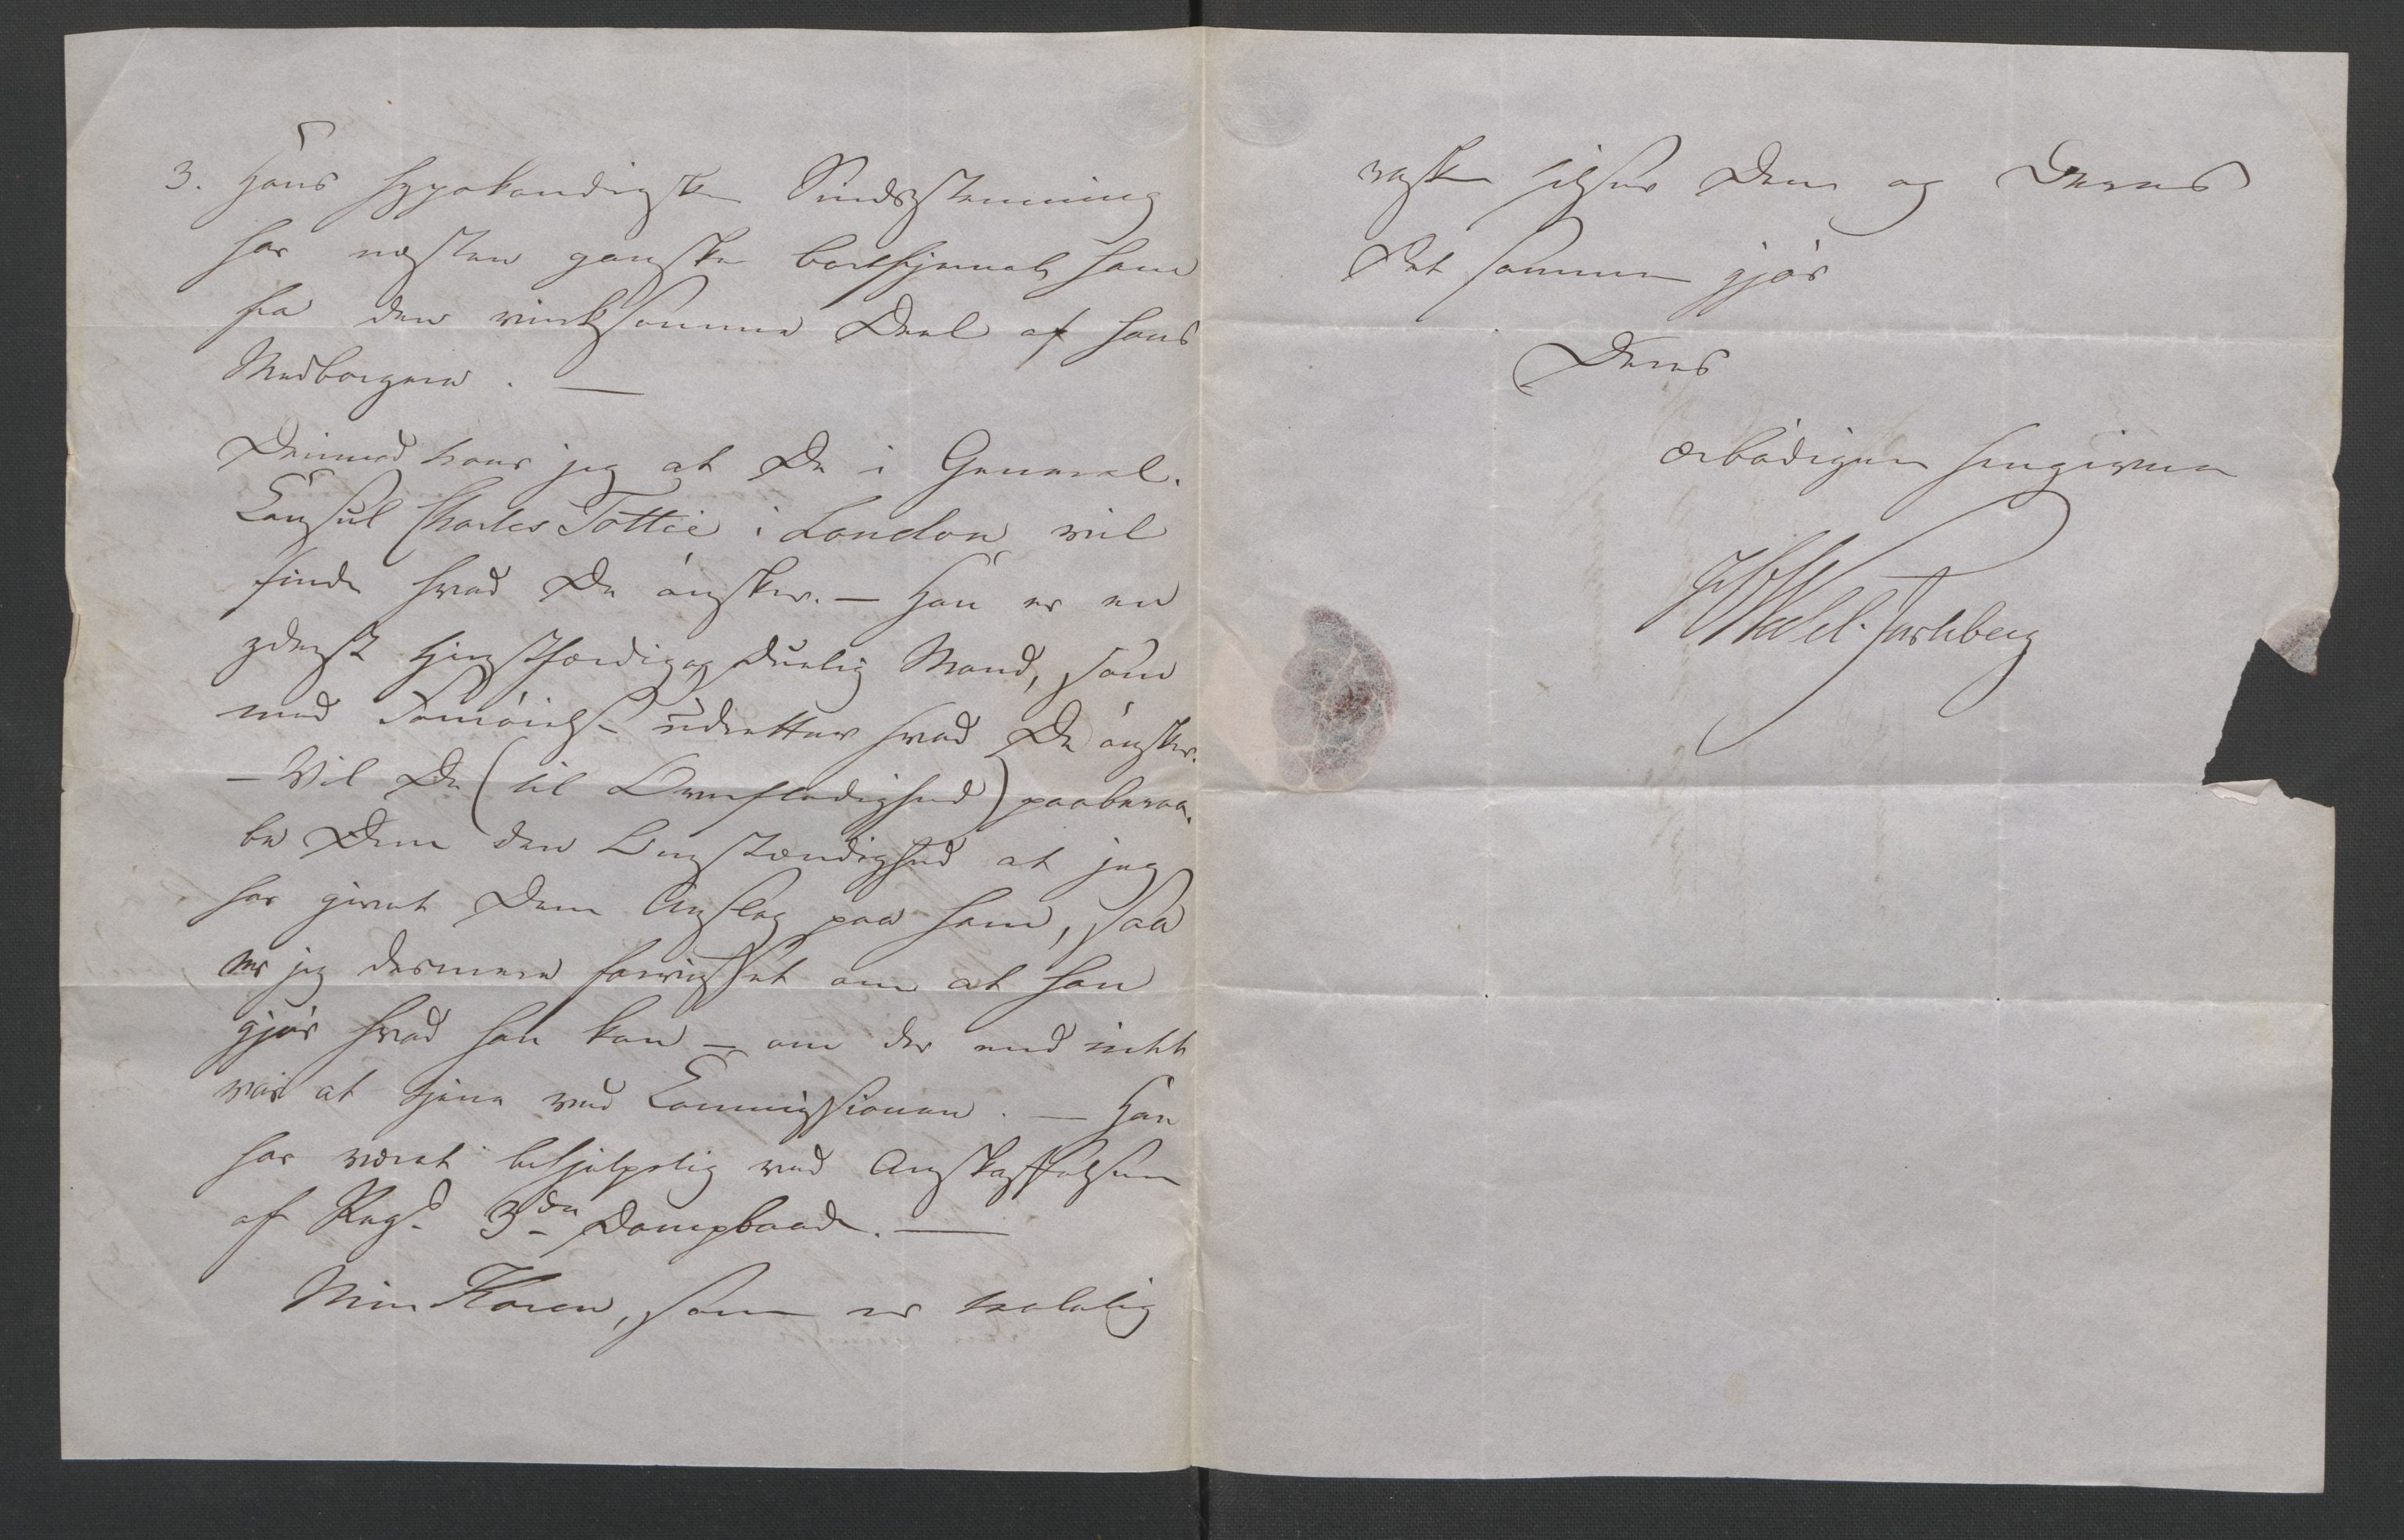 3. Hans hypokondriske Sindsstemning
har næsten ganske bortfjernet ham
fra den virksomme Deel af hans
Medborgere. —
Derimod troer jeg at De i General-
Consul Charles Tottie i London vil
finde hvad De ønsker. — Han er en
yderst tjenstfærdig og duelig Mand, som
med Fornøielse udretter hvad De ønsker.
— Vil De (til Overflødighed) paaberaa-
be Dem den Omstændighed at jeg
har givet Dem Anslag paa ham, saa
er jeg desmere forvisset om at han
gjør hvad han kan — om der end intet
var at tjene ved Commissionen. — Han
har været behjelpelig ved Anskaffelsen
af Reg.s 3de Dampbaade. —
Min Karen, som er taalelig
rask hilser Dem og Deres
Det samme gjør
Deres
ærbødigen hengivne
Wedel-Jarlsberg